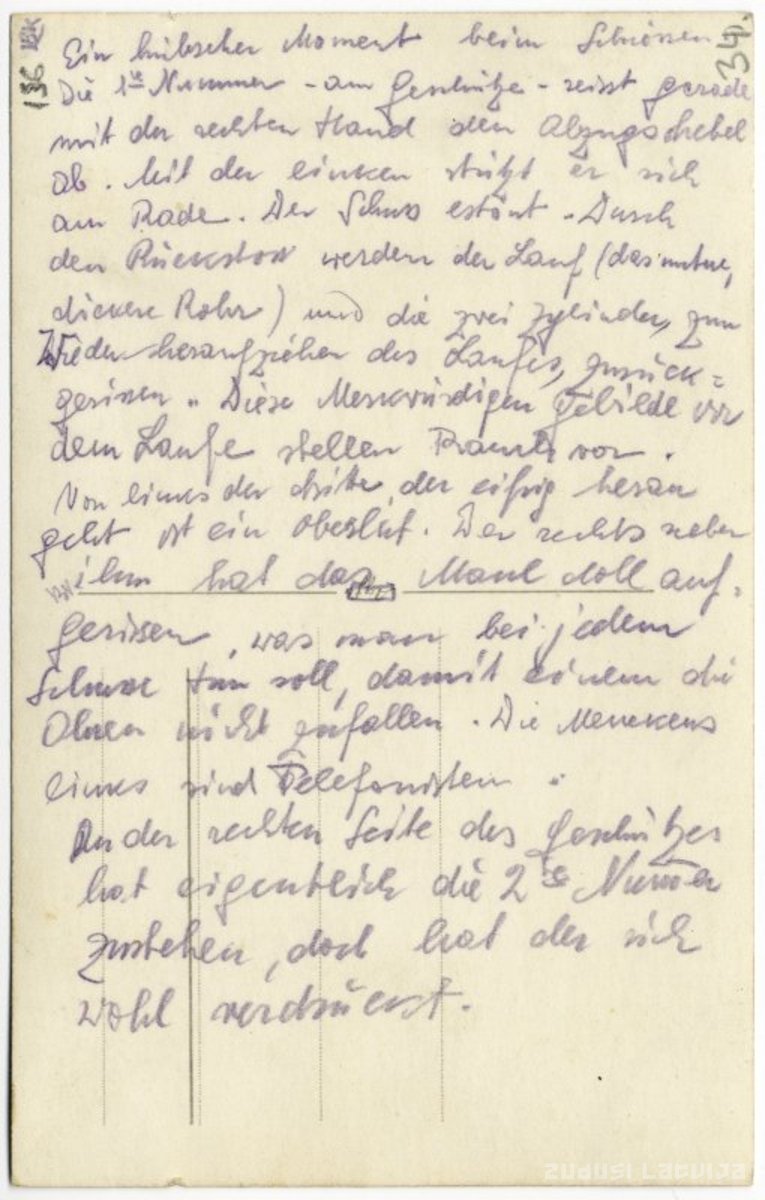 136
34.
Ein hübscher Moment beim Schiessen.
Die 1te Nummer - am Geschütze - reisst gerade
mit der rechten Hand den Abzugschebel
ab. Mit der linken stützt er sich
am Rade. Der Schuss ertönt. Durch
den Rückstoss werden der Lauf (das untere,
dickere Rohr) und die zwei Zylinder, zum
Wieder heraufziehen des Laufes, zurück=
gerissen. Diese Merkwürdigen Gebilde vor
dem Laufe stellen Rauch vor.
Von links der dritte, der eifrig heran
geht ist ein Oberlut. Der rechts neben
ihm hat das Maul doll auf-
gerissen, was man bei jedem
Schusse tun soll, damit einem die
Ohren nicht zufallen. Die Menckens
links sind Telefonisten.
An der rechten Seite des Geschützes
hat eigentlich die 2te Numer
zustehen, doch hat der sich
wohl verdrückt.
ZUDUSI LATVIJA